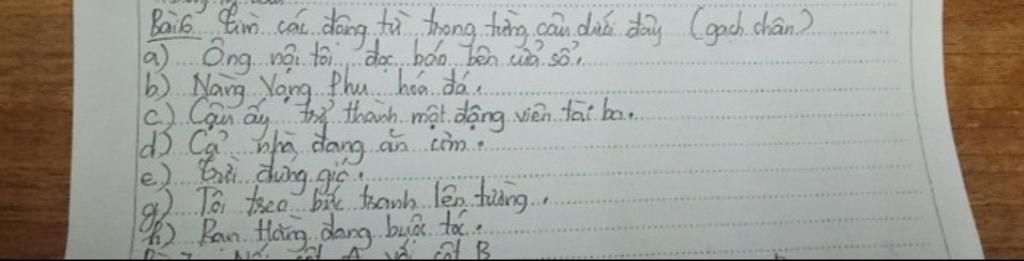 Bài 6. Tìm các động từ trong từng câu dưới đây (gạch chân)
a) Ông nội tôi đọc báo bên cửa sổ.
b) Nàng Vọng Phu hóa đá.
c) Cậu ấy trở thành một động viên tài ba.
d) Cả nhà đang ăn cơm.
e) Trời đứng gió.
g) Tôi treo bức tranh lên tường.
h) Bạn Hằng đang buộc tóc.
cột A với cột B